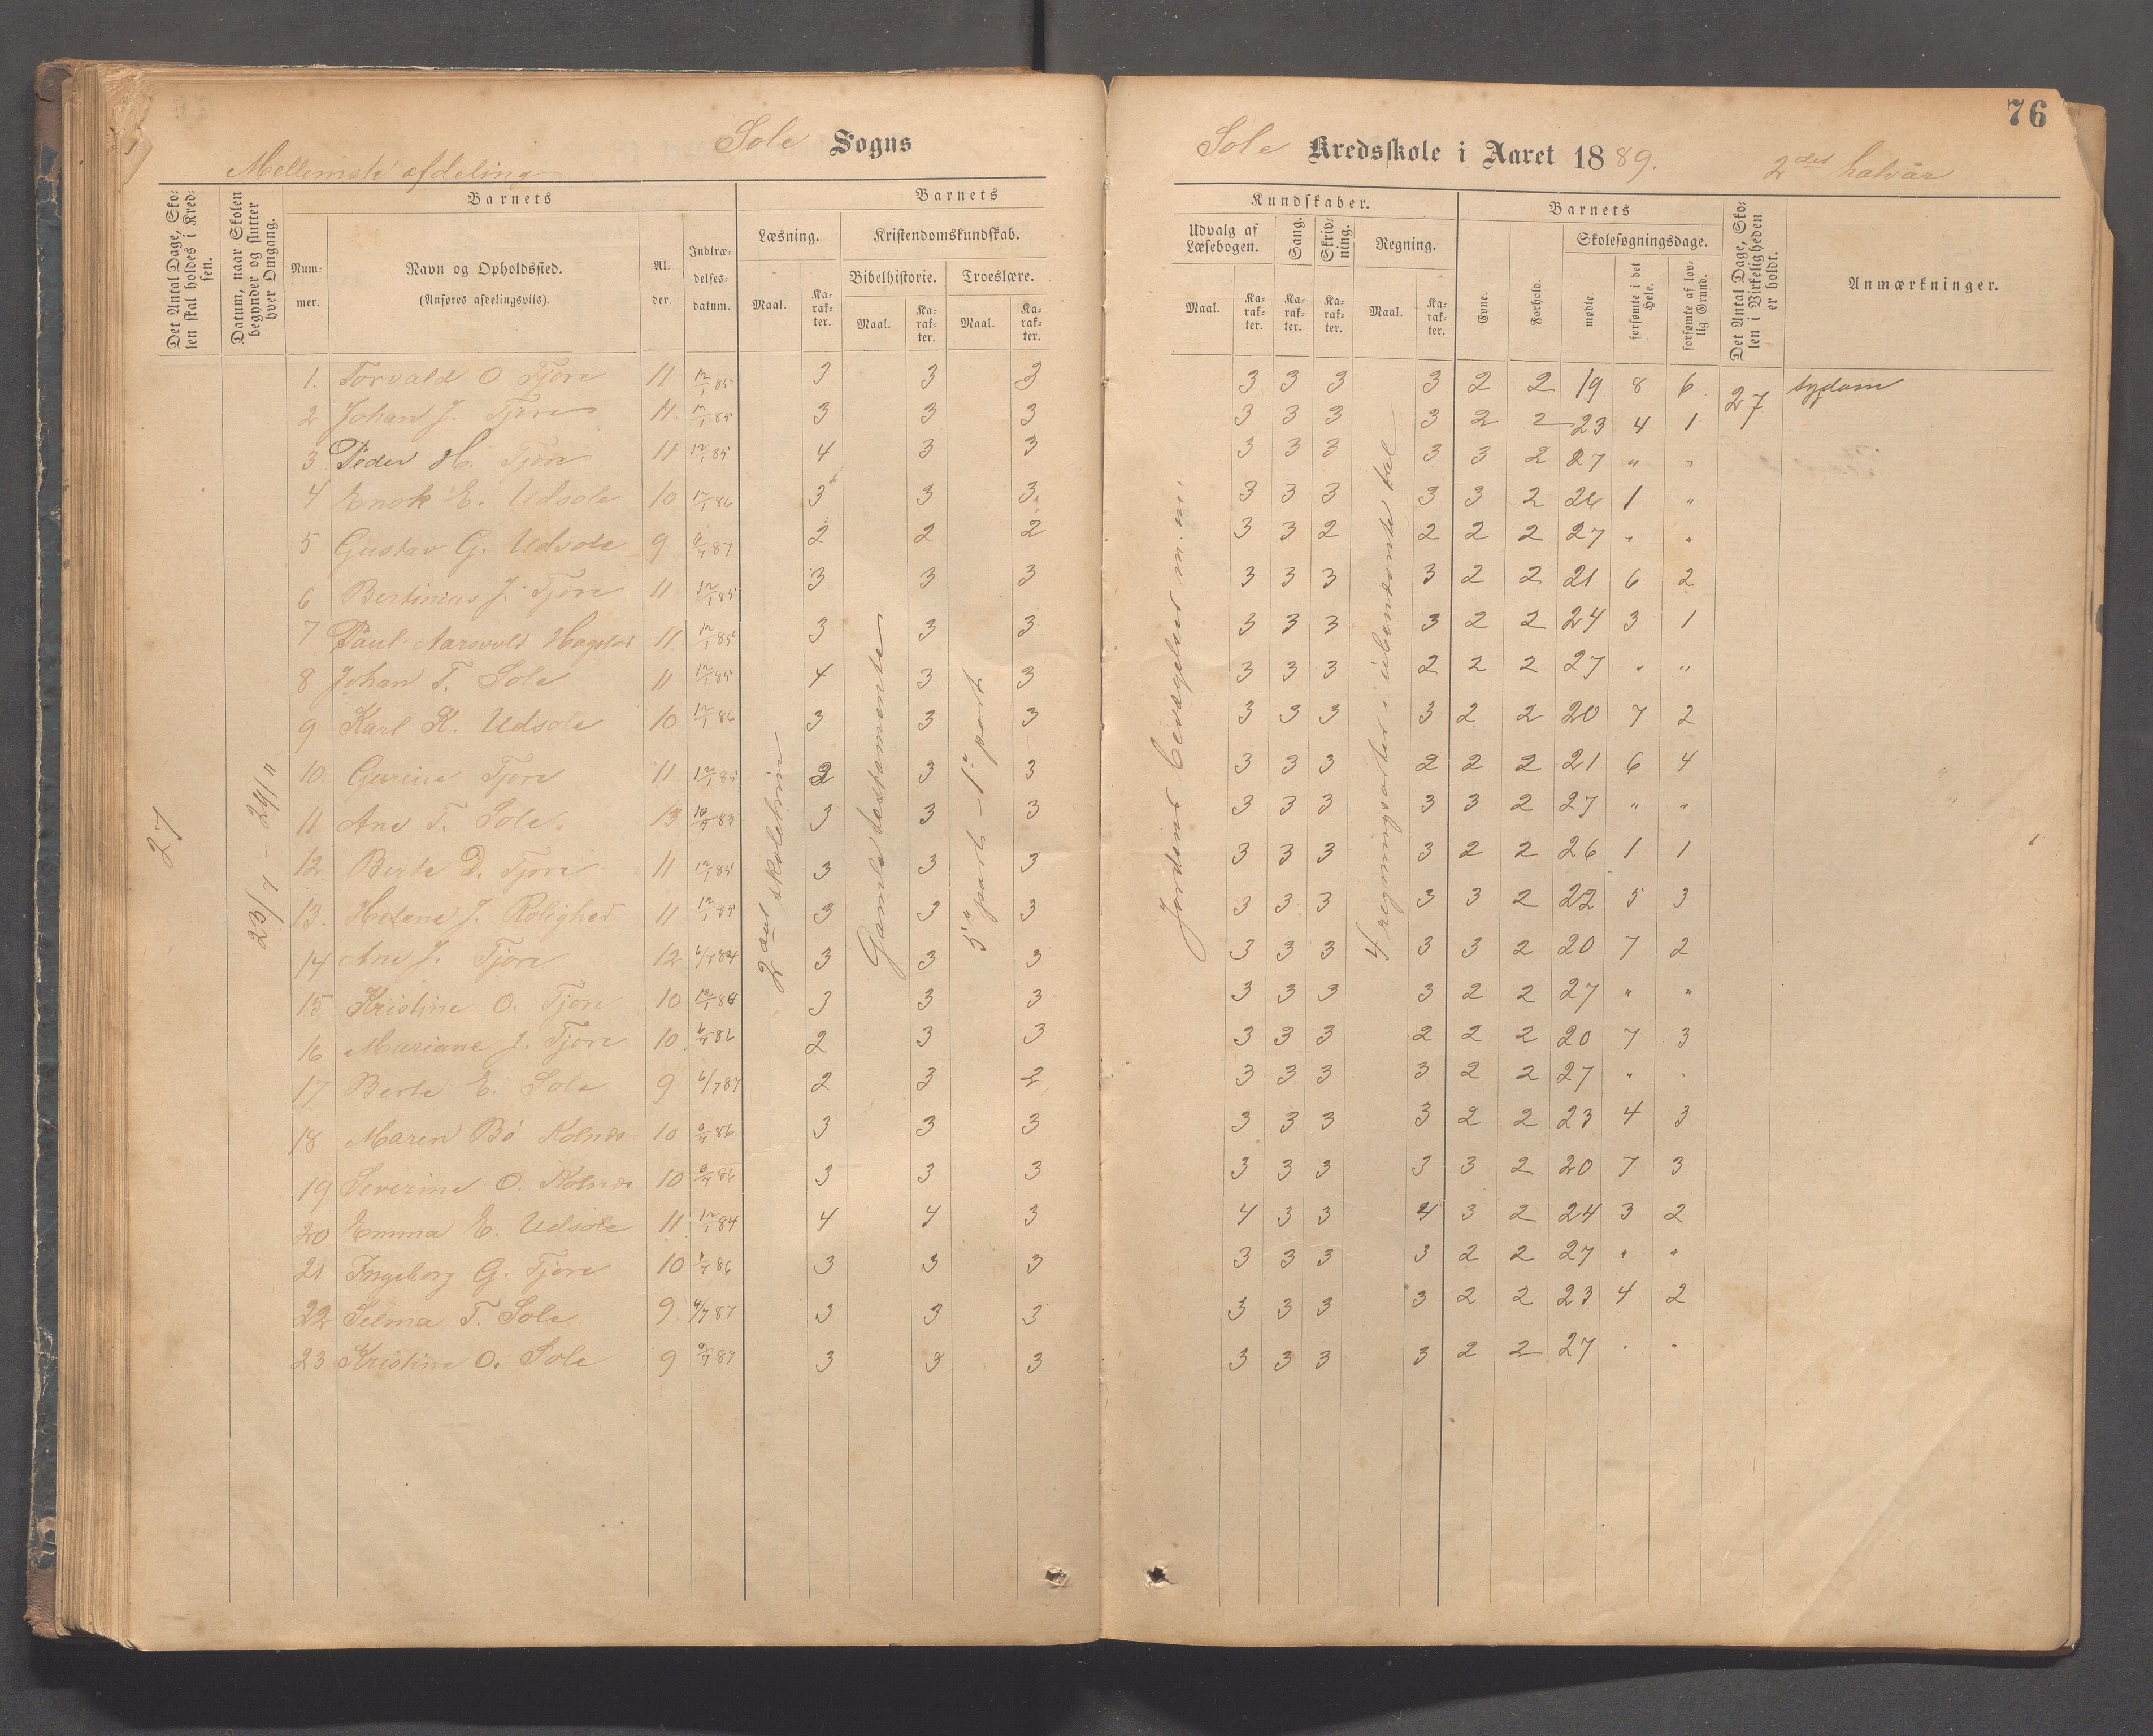 76
Sole Sogns
Sole Kredsskole i Aaret 1889. 2det halvår
Mellemste afdeling
Det Antal Dage, Skolen skal holdes i Kredsen.
Datum, naar Skolen begynder og slutter hver Omgang.
Barnets
Nummer.
Navn og Opholdssted.
(Anføres afdelingsviis).
Alder.
Indtrædelsesdatum.
Barnets
Læsning.
Maal.
Karakter.
Kristendomskundskab.
Bibelhistorie.
Maal.
Karakter.
Troeslære.
Maal.
Karakter.
Kundskaber.
Udvalg af Læsebogen.
Maal.
Karakter.
Sang.
Karakter.
Skrivning.
Karakter.
Regning.
Maal.
Karakter.
Barnets
Evne.
Forhold.
Skolesøgningsdage.
mødte.
forsømte i det Hele.
forsømte af lovlig Grund.
Det Antal Dage, Skolen i Virkeligheden er holdt.
Anmærkninger.
27
23/7 - 24/11
2det skoletrin
Gamle testamente
5te part - 1te part
Jordens bevægelser m.m.
4 regningsarter i ubenævnte tal
1. Torvald O Tjore 11 12/1 85 3 3 3 3 3 3 3 2 2 19 8 6 27 sygdom
2 Johan J. Tjore 11 12/1 85 3 3 3 3 3 3 3 2 2 23 4 1
3 Peder H. Tjore 11 12/1 85 4 3 3 3 3 3 3 3 2 27 " "
4 Enok E. Udsole 10 12/1 86 3 3 3 3 3 3 3 3 2 26 1 "
5 Gustav G. Udsole 9 6/7 87 2 2 2 3 3 2 2 2 2 27 " "
6 Bertinius J. Tjore 11 12/1 85 3 3 3 3 3 3 3 2 2 21 6 2
7 Paul Aarsvold 11 12/1 85 3 3 3 3 3 3 3 2 2 24 3 1
8 Johan T. Sole 11 12/1 85 4 3 3 3 3 3 2 2 2 27 " "
9 Karl K. Udsole 10 12/1 86 3 3 3 3 3 3 3 2 2 20 7 2
10. Gurine Tjore 11 12/1 85 2 3 3 3 3 3 2 2 2 21 6 4
11 Ane T. Sole 13 3 3 3 3 3 3 3 3 2 27 " "
12. Berte D. Tjore 11 12/1 85 3 3 3 3 3 3 3 2 2 26 1 1
13. Helene J. Rolighed 11 12/1 85 3 3 3 3 3 3 3 3 2 22 5 3
14 Ane J. Tjore 12 6/7 84 3 3 3 3 3 3 3 3 2 20 7 2
15 Kristine O. Tjore 10 12/1 86 3 3 3 3 3 3 3 2 2 27 " "
16 Mariane J. Tjore 10 6/7 86 2 3 3 3 3 3 2 2 2 20 7 3
17 Berte E. Sole 9 6/7 87 2 3 2 3 3 3 3 2 2 27 " "
18 Maren Bö Kolnes 10 6/7 86 3 3 3 3 3 3 3 2 2 23 4 3
19 Severine O. Kolnes 10 6/7 86 3 3 3 3 3 3 3 3 2 20 7 3
20 Emma E. Udsole 11 12/1 84 4 4 3 4 3 3 4 3 2 24 3 2
21 Ingeborg G. Tjore 10 6/7 86 3 3 3 3 3 3 3 2 2 27 " "
22 Selma T. Sole 9 6/7 87 3 3 3 3 3 3 3 2 2 23 4 2
23 Kristine O. Sole 9 6/7 87 3 3 3 3 3 3 3 2 2 27 " "